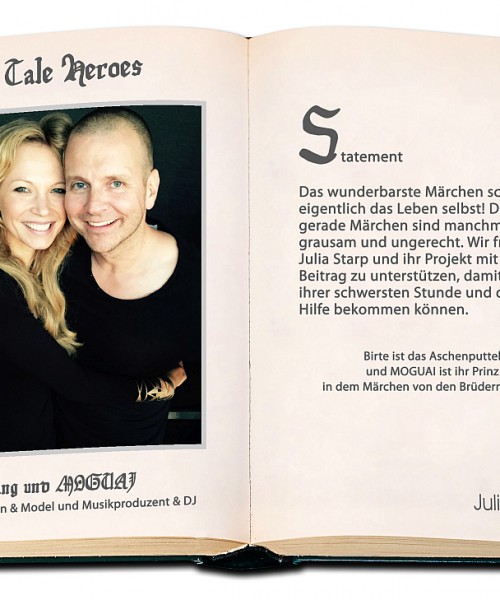 Tale Heroes
ng und MOGUAI
n & Model und Musikproduzent & DJ
Statement
Das wunderbarste Märchen sc
eigentlich das Leben selbst! D
gerade Märchen sind manchm
grausam und ungerecht. Wir fr
Julia Starp und ihr Projekt mit
Beitrag zu unterstützen, damit
ihrer schwersten Stunde und d
Hilfe bekommen können.
Birte ist das Aschenputtel
und MOGUAI ist ihr Prinz
in dem Märchen von den Brüdern
Juli